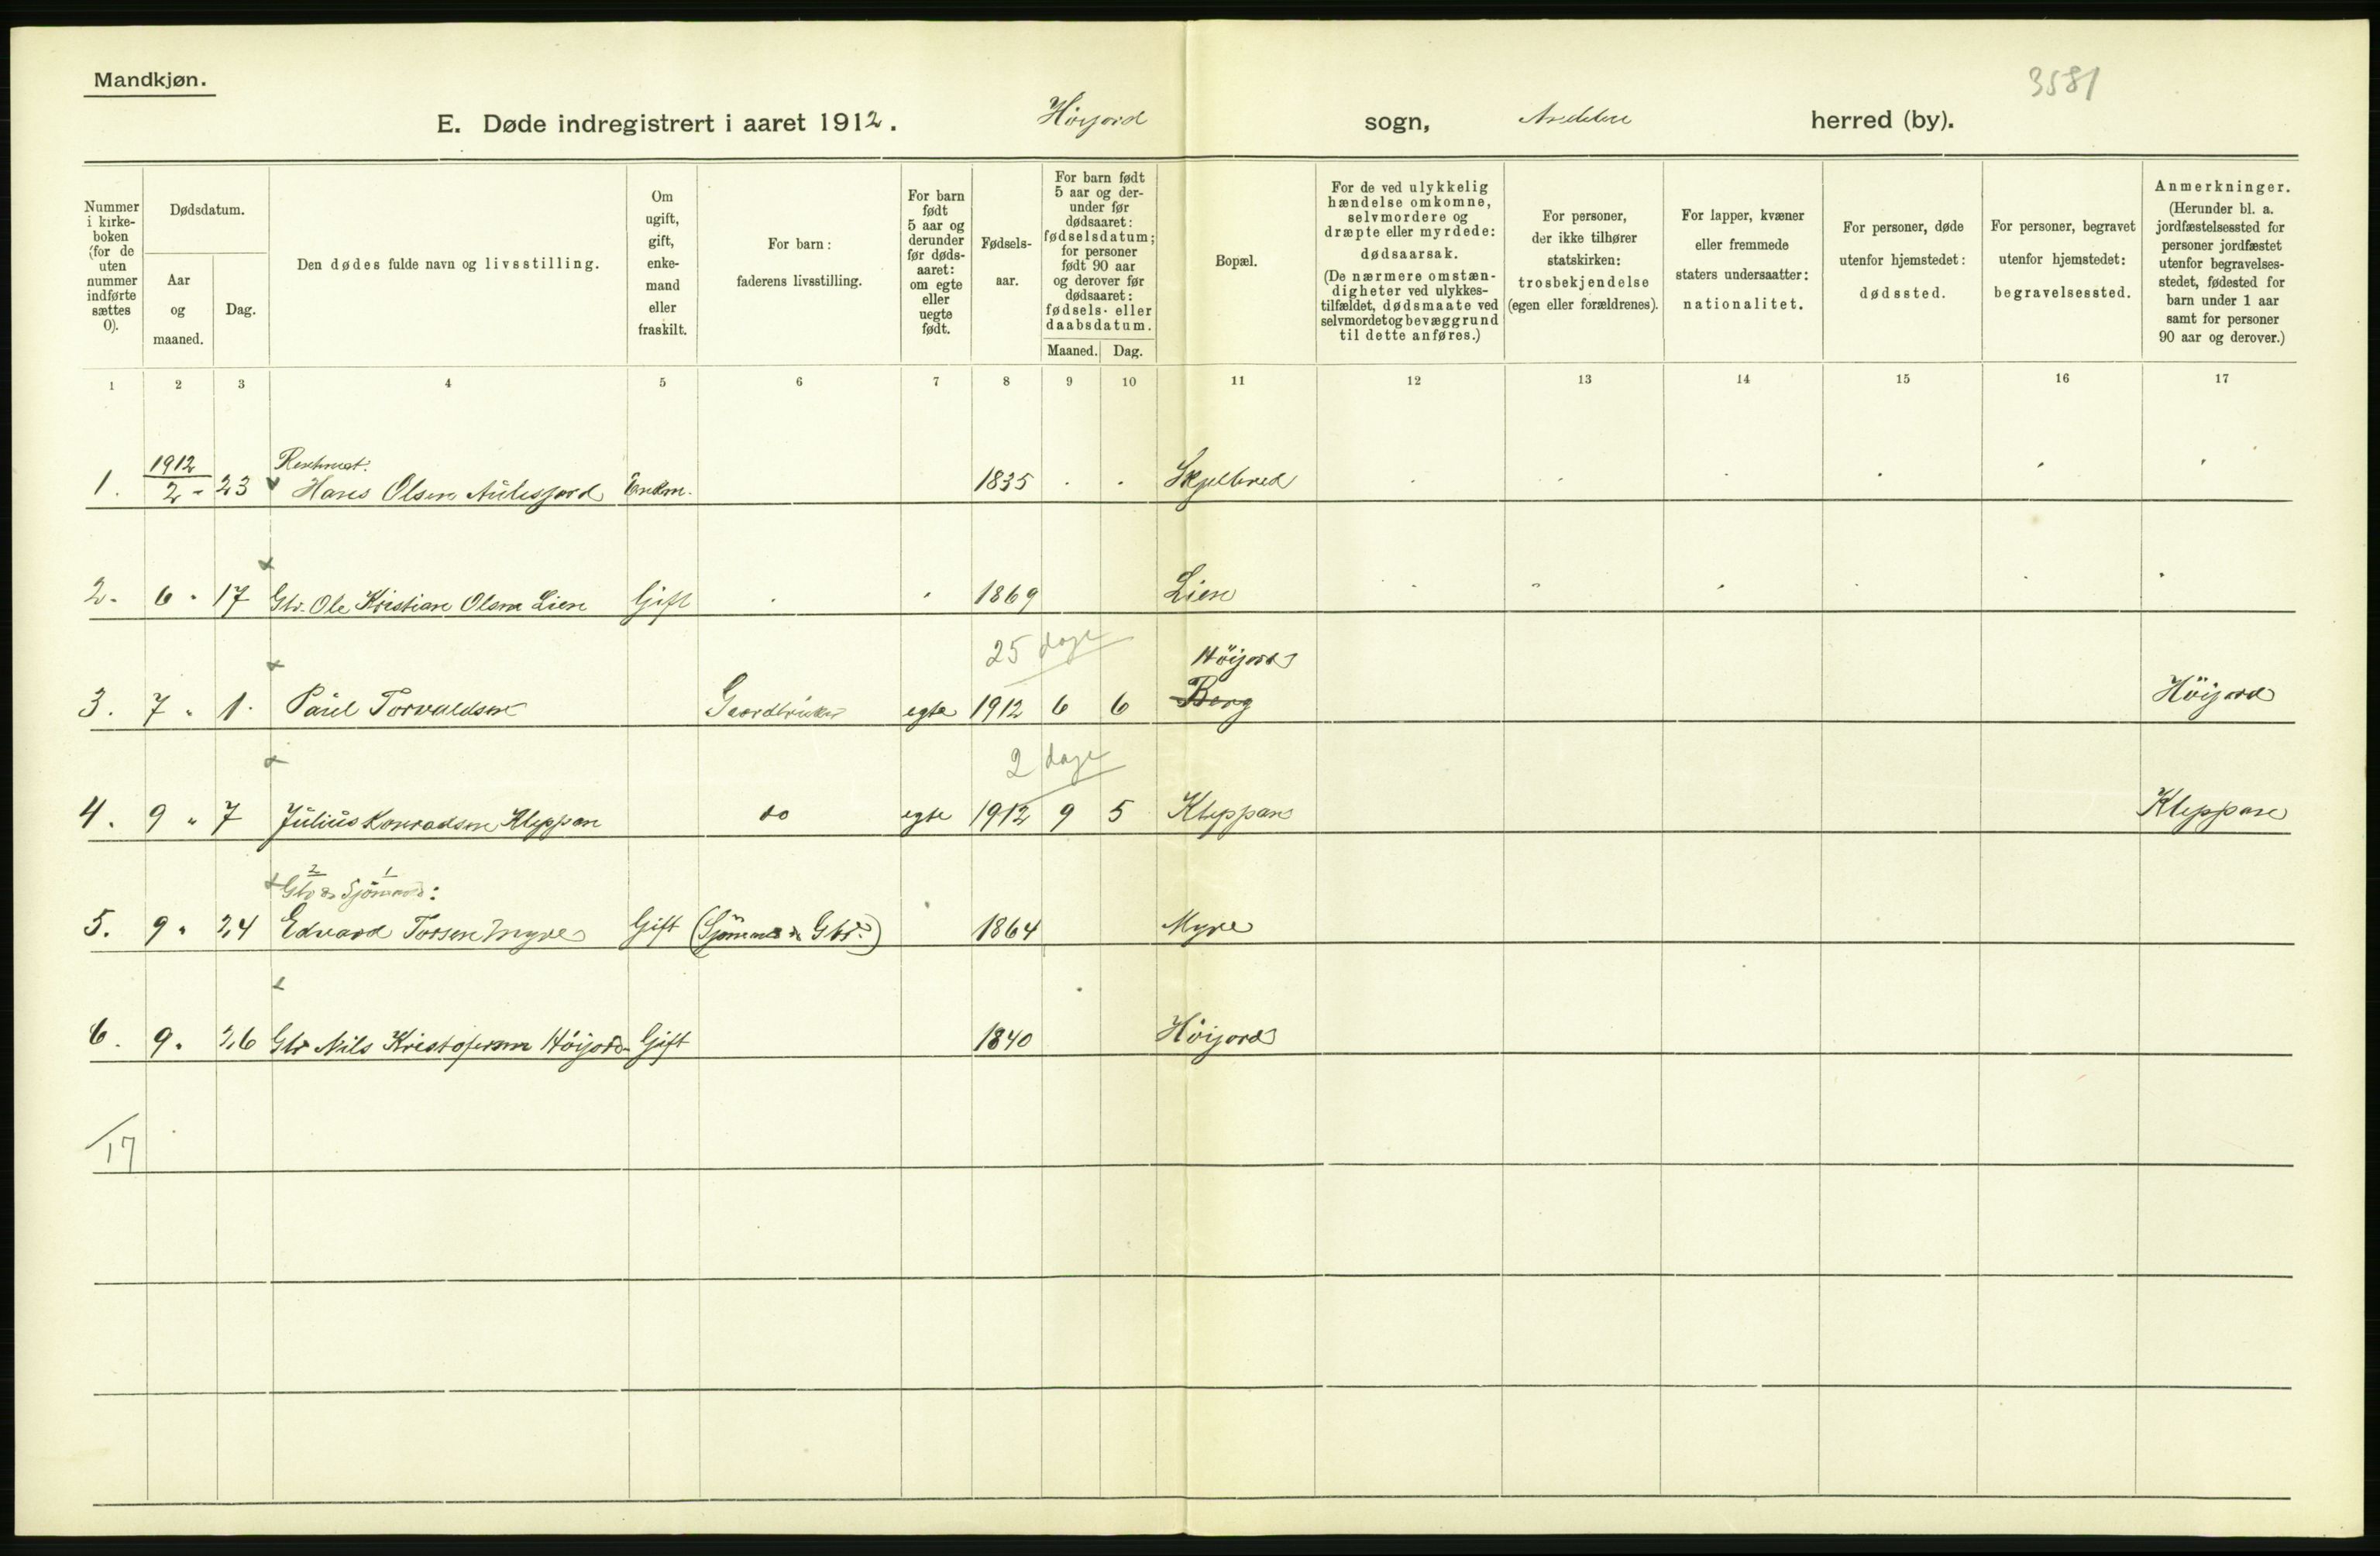 Mandkjøn.
3581
E. Døde indregistrert i aaret 1912. Höijord sogn, Andebu herred (by).
Nummer
i kirke-
boken
(for de
uten
nummer
indførte
sættes
0).
Dødsdatum.
Aar
og
maaned.
Dag.
Den dødes fulde navn og livsstilling.
Om
ugift,
gift,
enke-
mand
eller
fraskilt.
For barn:
faderens livsstilling.
For barn
født
5 aar og
derunder
før døds-
aaret:
om egte
eller
uegte
født.
Fødsels-
aar.
For barn født
5 aar og der-
under før
dødsaaret:
fødselsdatum;
for personer
født 90 aar
og derover før
dødsaaret:
fødsels- eller
daabsdatum.
Maaned. Dag.
Bopæl.
For de ved ulykkelig
hændelse omkomne,
selvmordere og
dræpte eller myrdede:
dødsaarsak.
(De nærmere omstæn-
digheter ved ulykkes-
tilfældet, dødsmaate ved
selvmordet og bevæggrund
til dette anføres.)
For personer,
der ikke tilhører
statskirken:
trosbekjendelse
(egen eller forældrenes).
For lapper, kvæner
eller fremmede
staters undersaatter:
nationalitet.
For personer, døde
utenfor hjemstedet:
dødssted.
For personer, begravet
utenfor hjemstedet:
begravelsessted.
Anmerkninger.
(Herunder bl. a.
jordfæstelsessted for
personer jordfæstet
utenfor begravelses-
stedet, fødested for
barn under 1 aar
samt for personer
90 aar og derover.)
1 2 3 4 5 6 7 8 9 10 11 12 13 14 15 16 17
1912
1. 2 - 23 Hans Olsen Aulesjord Enkm. 1835 Skjelbred
2. 6 " 17 Gbr. Ole Kristian Olsen Lien Gift 1869 Lien
25 dage
Höijord
3. 7 " 1. Paul Torvaldsen Gaardbruker egte 1912 6 6 Berg Höijord
2 dage
4. 9 " 7 Julius Konradsen Kleppan do egte 1912 9 5 Kleppan Kleppan
2 1
Gbr & Sjömand:
5. 9 " 24 Edvard Torsen Myre Gift (Sjömand & Gbr.) 1864 Myre
6. 9 " 26 Gbr Nils Kristofersen Höijord Gift 1840 Höijord
17